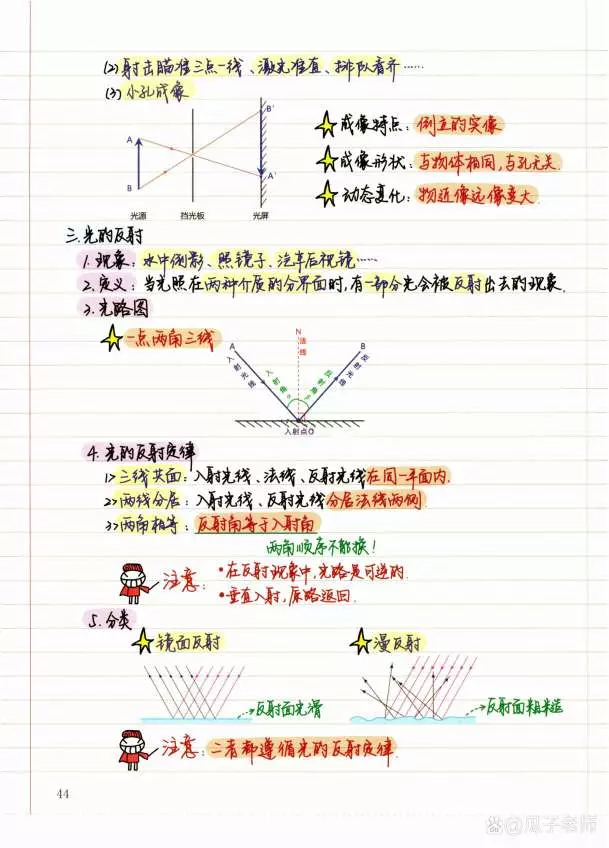 (2) 射击瞄准三点一线、激光准直、排队看齐……
(3) 小孔成像
A
B
B'
A'
光源
挡光板
光屏
成像特点：倒立的实像
成像形状：与物体相同，与孔无关.
动态变化：物近像远像变大.
三.光的反射
1.现象：水中倒影、照镜子、汽车后视镜……
2.定义：当光照在两种介质的分界面时，有一部分光会被反射出去的现象.
3.光路图
一点两角三线
A
N
B
法线
入射光线
入射角
反射角
反射光线
入射点O
4.光的反射定律
1>三线共面：入射光线、法线、反射光线在同一平面内.
2>两线分居：入射光线、反射光线分居法线两侧.
3>两角相等：反射角等于入射角
两角顺序不能换！
注意：
•在反射现象中，光路是可逆的.
•垂直入射，原路返回.
5.分类
镜面反射
漫反射
反射面光滑
反射面粗糙
注意：二者都遵循光的反射定律.
44
百@瓜子老师